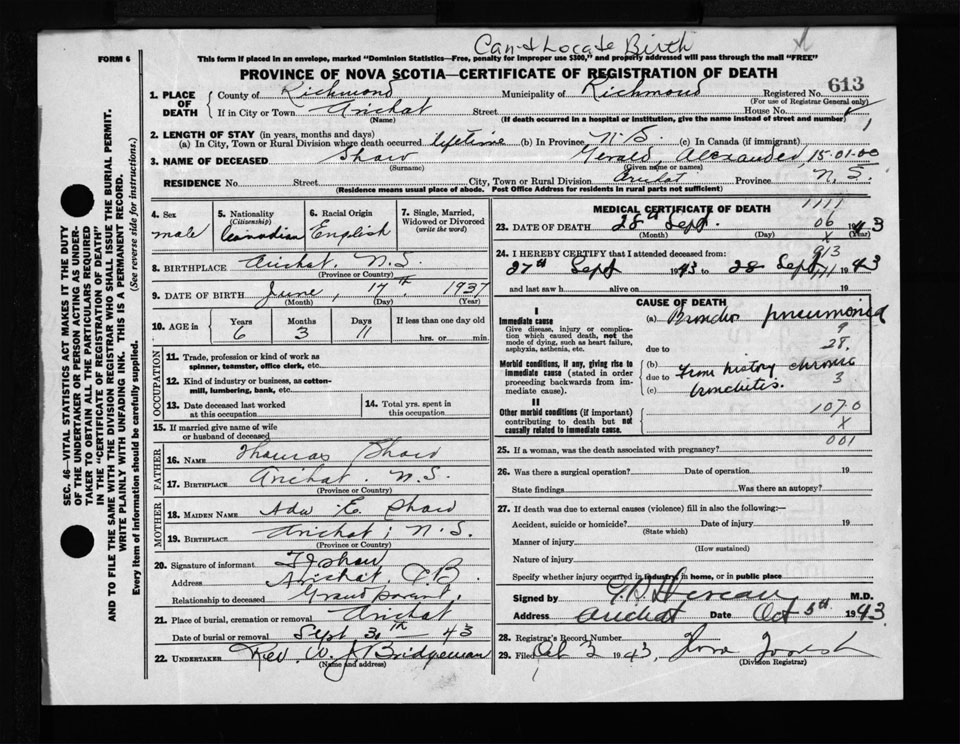 Can-t Locate Birth
FORM 6
This form if placed in an envelope, marked "Dominion Statistics—Free, penalty for improper use $300," and properly addressed will pass through the mail "FREE"
PROVINCE OF NOVA SCOTIA—CERTIFICATE OF REGISTRATION OF DEATH
1. PLACE OF DEATH
County of Richmond Municipality of Richmond Registered No. 613
(For use of Registrar General only)
If in City or Town Arichat Street House No.
(Name) (If death occurred in a hospital or institution, give the name instead of street and number)
2. LENGTH OF STAY (in years, months and days)
(a) In City, Town or Rural Division where death occurred lifetime (b) In Province N.S. (c) In Canada (if immigrant)
3. NAME OF DECEASED Shaw Gerald, Alexander 15-01-00
(Surname) (Given name or names)
RESIDENCE No Street City, Town or Rural Division Arichat Province N.S.
(Residence means usual place of abode. Post Office Address for residents in rural parts not sufficient)
SEC. 46—VITAL STATISTICS ACT MAKES IT THE DUTY
OF THE UNDERTAKER OR PERSON ACTING AS UNDER-
TAKER TO OBTAIN ALL THE PARTICULARS REQUIRED
IN THE "CERTIFICATE OF REGISTRATION OF DEATH"
AND TO FILE THE SAME WITH THE DIVISION REGISTRAR WHO SHALL ISSUE THE BURIAL PERMIT.
WRITE PLAINLY WITH UNFADING INK. THIS IS A PERMANENT RECORD.
Every item of information should be carefully supplied. (See reverse side for instructions.)
4. Sex
male
5. Nationality
(Citizenship)
Canadian
6. Racial Origin
English
7. Single, Married,
Widowed or Divorced
(write the word)
8. BIRTHPLACE Arichat, N.S.
(Province or Country)
9. DATE OF BIRTH June, 17th, 1937
(Month) (Day) (Year)
10. AGE in
Years Months Days If less than one day old
6 3 11 hrs. or min.
OCCUPATION
11. Trade, profession or kind of work as
spinner, teamster, office clerk, etc.
12. Kind of industry or business, as cotton-
mill, lumbering, bank, etc.
13. Date deceased last worked
at this occupation
14. Total yrs. spent in
this occupation
15. If married give name of wife
or husband of deceased
FATHER
16. NAME Thomas Shaw
17. BIRTHPLACE Arichat, N.S.
(Province or Country)
MOTHER
18. MAIDEN NAME Ada E. Shaw
19. BIRTHPLACE Arichat, N.S.
(Province or Country)
20. Signature of informant Shaw
Address Arichat, C.B.
Relationship to deceased Grandparent
21. Place of burial, cremation or removal Arichat
Date of burial or removal Sept 30th — 43
22. UNDERTAKER Rev. W. J. Bridgeman
(Name and address)
MEDICAL CERTIFICATE OF DEATH
1111
23. DATE OF DEATH 28th Sept. 06 1943
(Month) (Day) X (Year)
24. I HEREBY CERTIFY that I attended deceased from: 913
27th Sept 1943 to 28 Sept 1943
and last saw h alive on 19
CAUSE OF DEATH
I
Immediate cause
Give disease, injury or complica-
tion which caused death, not the
mode of dying, such as heart failure,
asphyxia, asthenia, etc.
(a) Broncho pneumonia
9
28.
due to
Morbid conditions, if any, giving rise to
immediate cause (stated in order
proceeding backwards from im-
mediate cause).
(b) From history chronic
due to
(c) bronchitis. 3
II
Other morbid conditions (if important)
contributing to death but not
causally related to immediate cause.
1070
X
001
25. If a woman, was the death associated with pregnancy?
26. Was there a surgical operation? Date of operation 19
State findings Was there an autopsy?
27. If death was due to external causes (violence) fill in also the following:—
Accident, suicide or homicide? Date of injury 19
(State which)
Manner of injury
(How sustained)
Nature of injury
Specify whether injury occurred in industry, in home, or in public place
Signed by M.D.
Address Arichat Date Oct 5th 1943
28. Registrar's Record Number
29. Filed Oct 3 1943,
(Division Registrar)